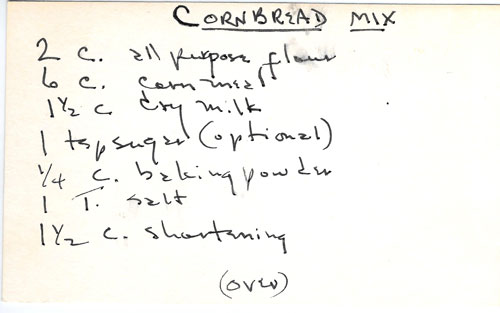 CORNBREAD MIX
2 c. all purpose flour
6 c. corn meal
1 1/2 c. dry milk
1 tsp sugar (optional)
1/4 c. baking powder
1 T. salt
1 1/2 c. shortening
(over)